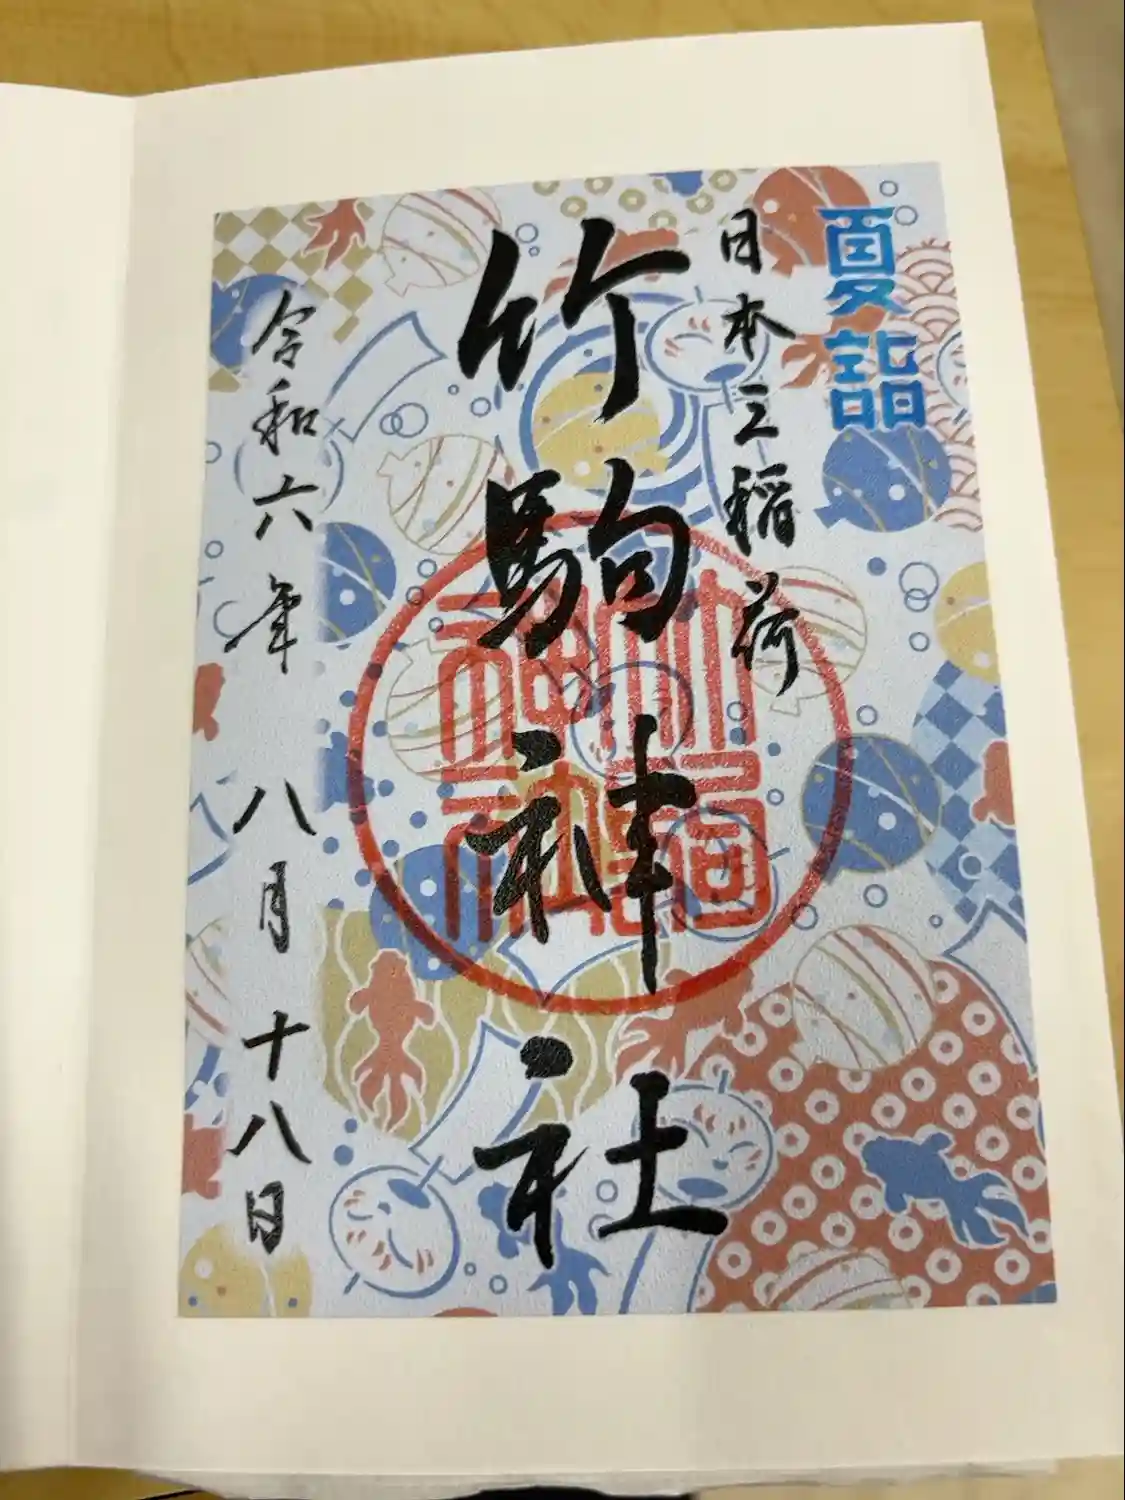 夏詣
日本三稲荷
竹駒神社
竹駒神社
令和六年 八月十八日